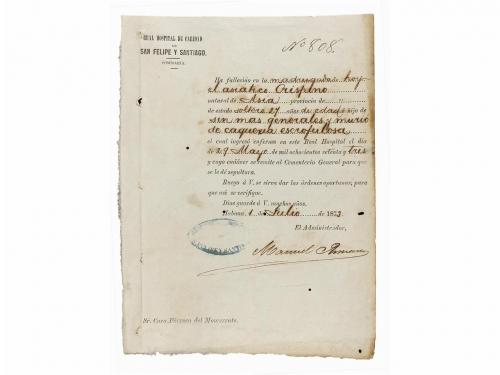 REAL HOSPITAL DE CARIDAD
DE
SAN FELIPE Y SANTIAGO.
Nº 808.
Ha fallecido en la madrugada de hoy
el asiático Crispino
natural de Asia provincia de "
de estado soltero 27 años de edad, hijo de
sin mas generales y murió
de caquexia escrofulosa
el cual ingresó enfermo en este Real Hospital el dia
de 29 Mayo de mil ochocientos setenta y tres
y cuyo cadáver se remite al Cementerio General para que
se le dé sepultura.
Ruego á V. se sirva dar las órdenes oportunas, para
que así se verifique.
Dios guarde á V. muchos años.
Habana 1 de Julio de 1873.
El Administrador,
Manuel
Sr. Cura Párroco del Monserrate.